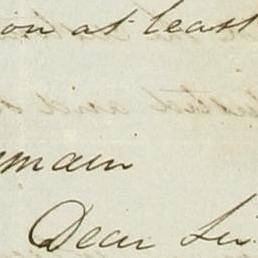 on at least
main
Dear Sir